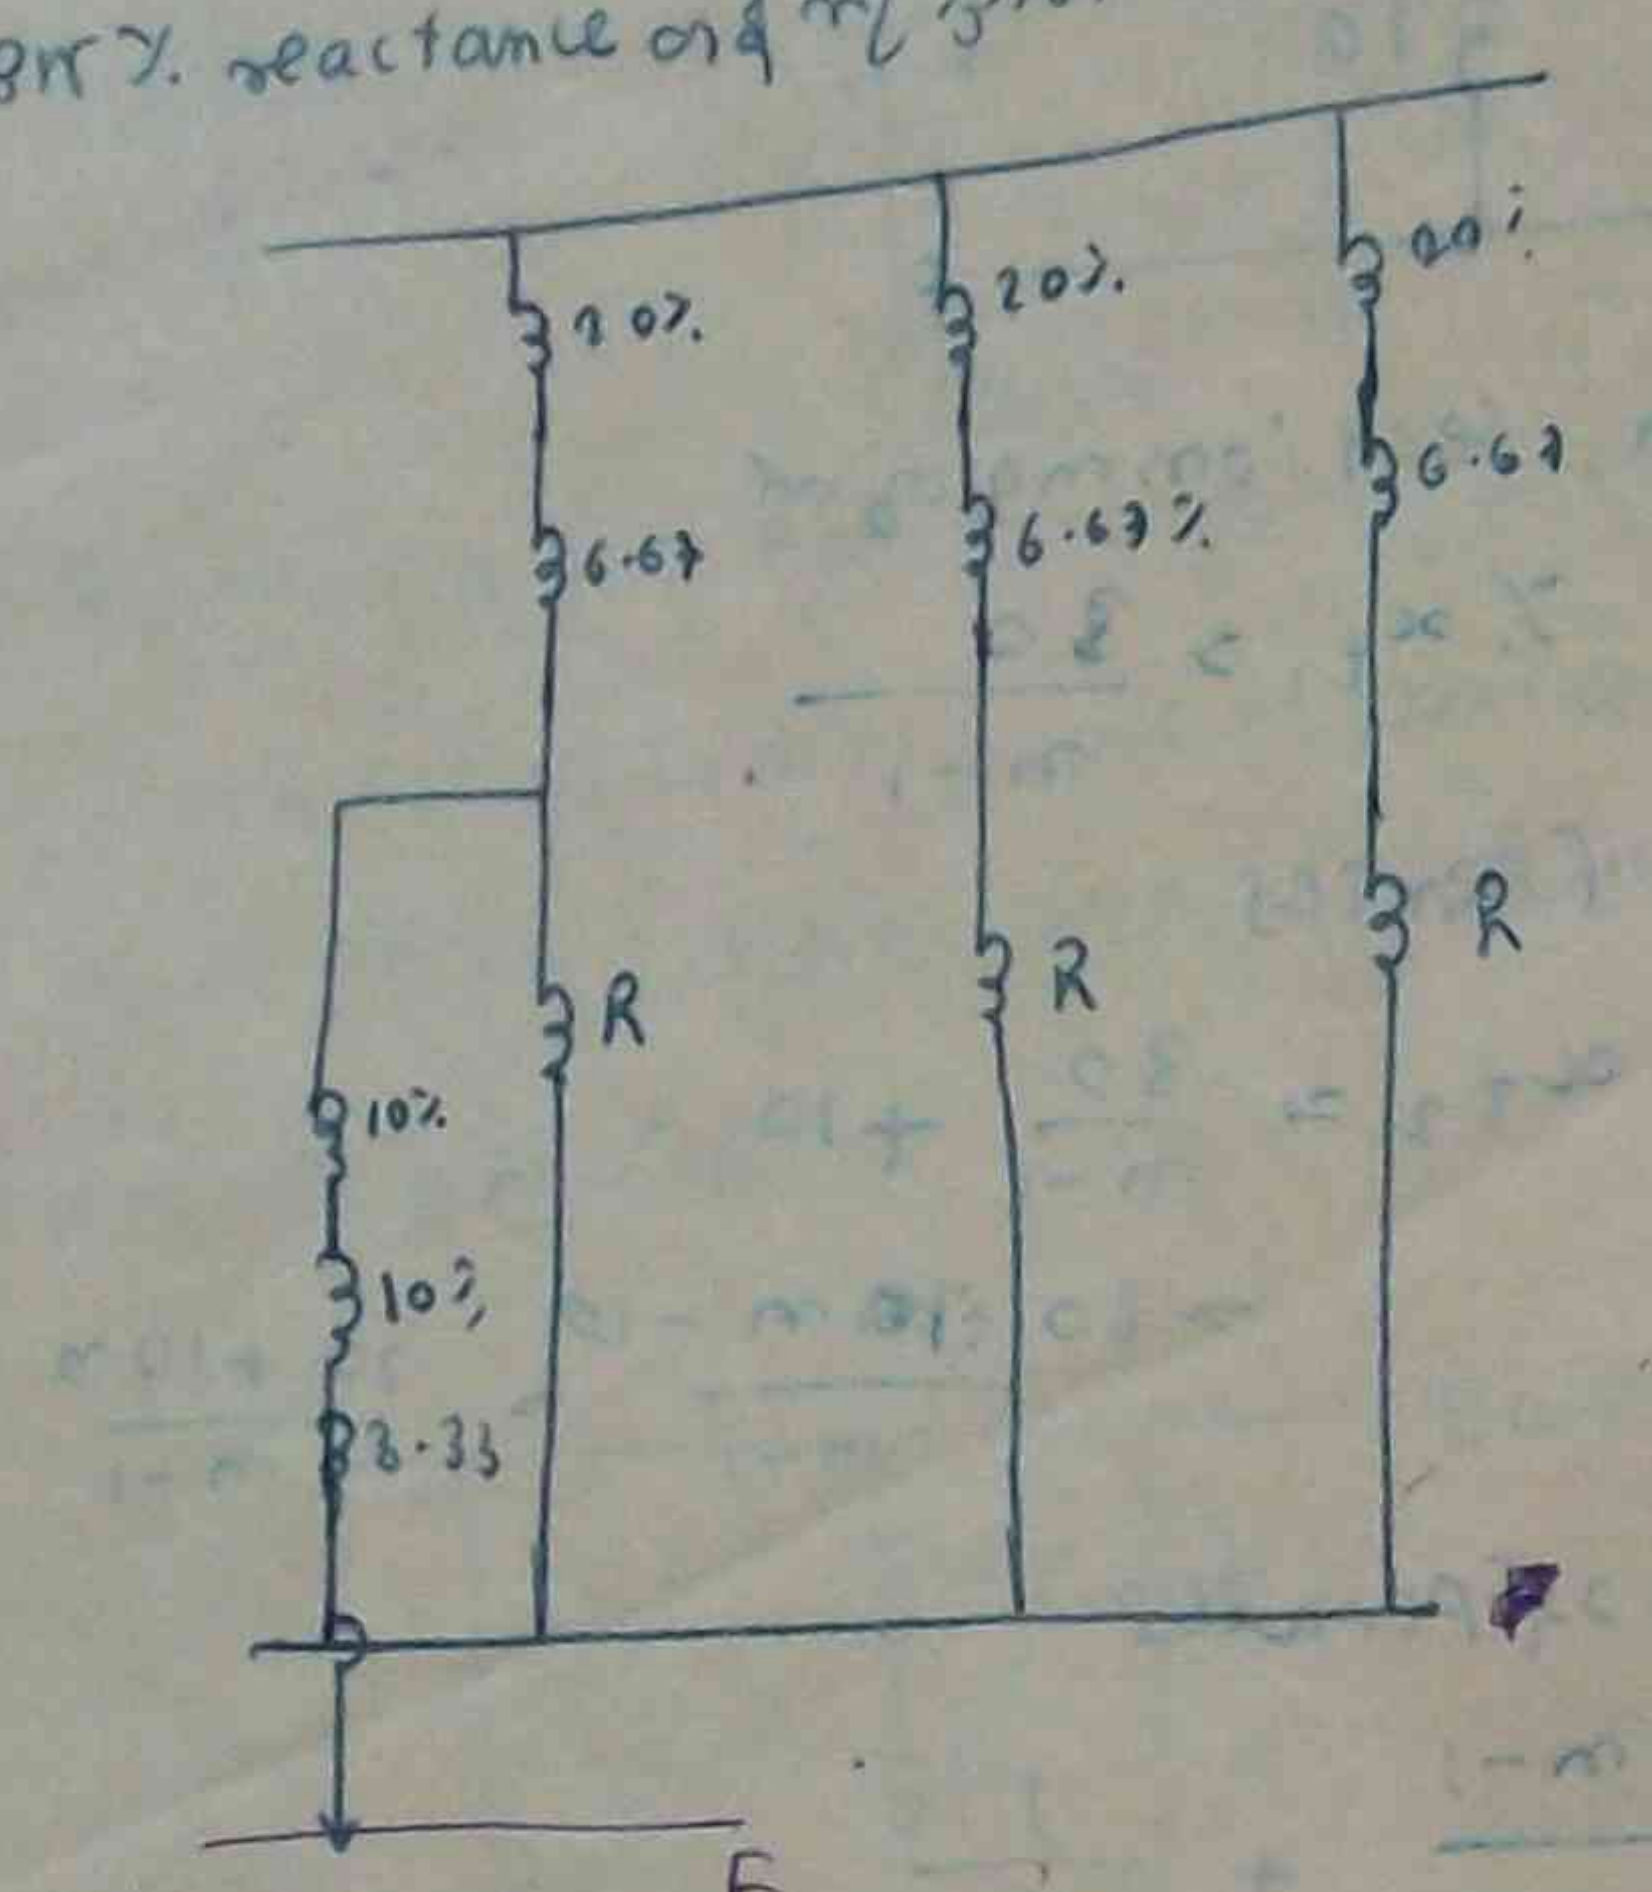 reactance of
20%.
20%.
20%
6.67
6.67%.
6.67
R
R
R
10%
10%
3.33
F